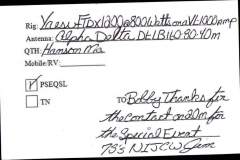 Rig: Yaesu FTDX1200@800Watts on a VL1000 amp
Antenna: Alpha Delta DLB160-80-40m
QTH: Hanson Ma
Mobile/RV:
PSEQSL
TN
TO Bobby Thanks for
the contact on 20m for
the Special Event
73's N1JCW Jim